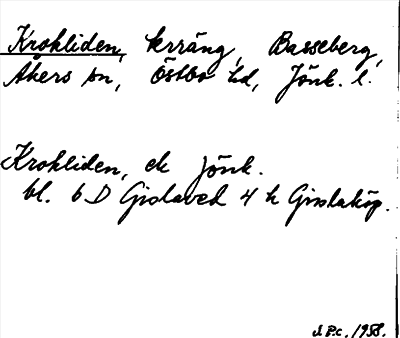 Krokliden, terräng, Basseberg,
Åkers sn, Östbo hd, Jönk. l.
Krokliden, ek Jönk.
bl. 6 D Gislaved 4 h Gisslaköp.
1958.